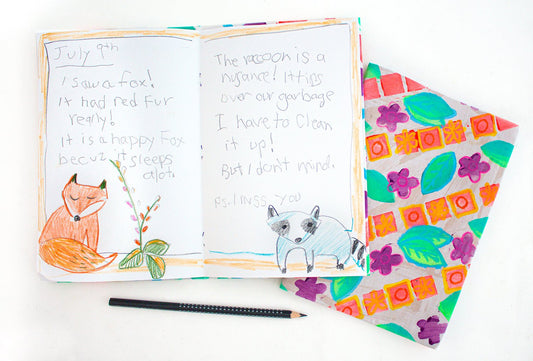 July 9th
I saw a fox!
It had red fur
really!
It is a happy Fox
becuz it sleeps
alot.
The racoon is a
nusance! It tips
over our garbage
I have to Clean
it up!
But I don't mind.
P.s. I miss you